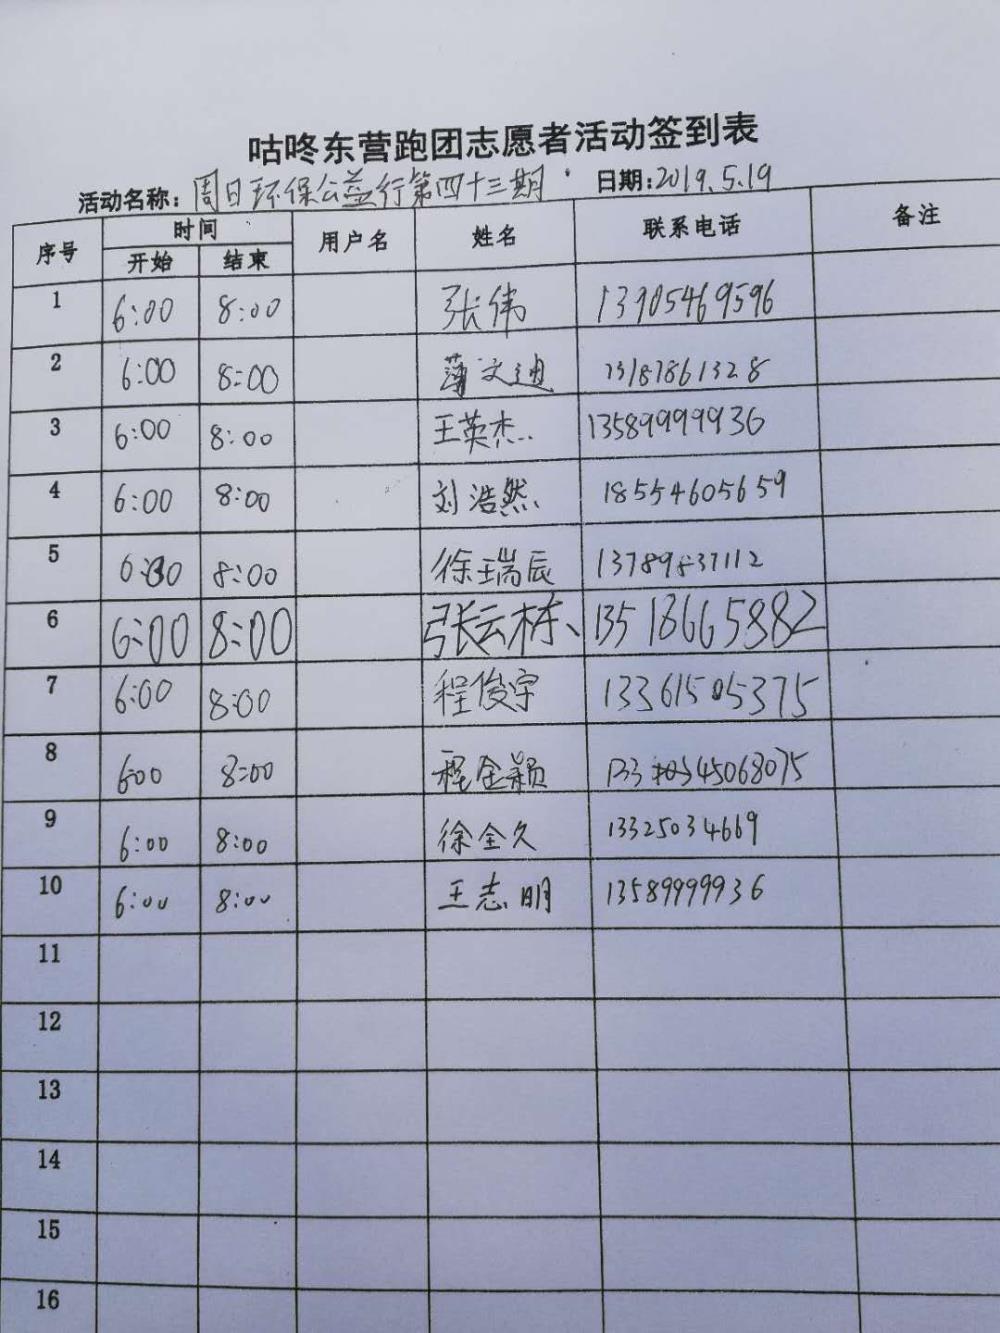 咕咚东营跑团志愿者活动签到表
活动名称：周日环保公益行第四十三期 日期：2019.5.19
序号 时间 用户名 姓名 联系电话 备注
开始 结束
1 6:00 8:00 张伟 13905469596
2 6:00 8:00 薄文迪 13187861328
3 6:00 8:00 王英杰 13589999936
4 6:00 8:00 刘浩然 18554605659
5 6:00 8:00 徐瑞辰 13789837112
6 6:00 8:00 张云栋 13518665882
7 6:00 8:00 程俊宇 13361505375
8 600 8:00 程金颖
9 6:00 8:00 徐全久 13325034669
10 6:00 8:00 王志明 13589999936
11
12
13
14
15
16